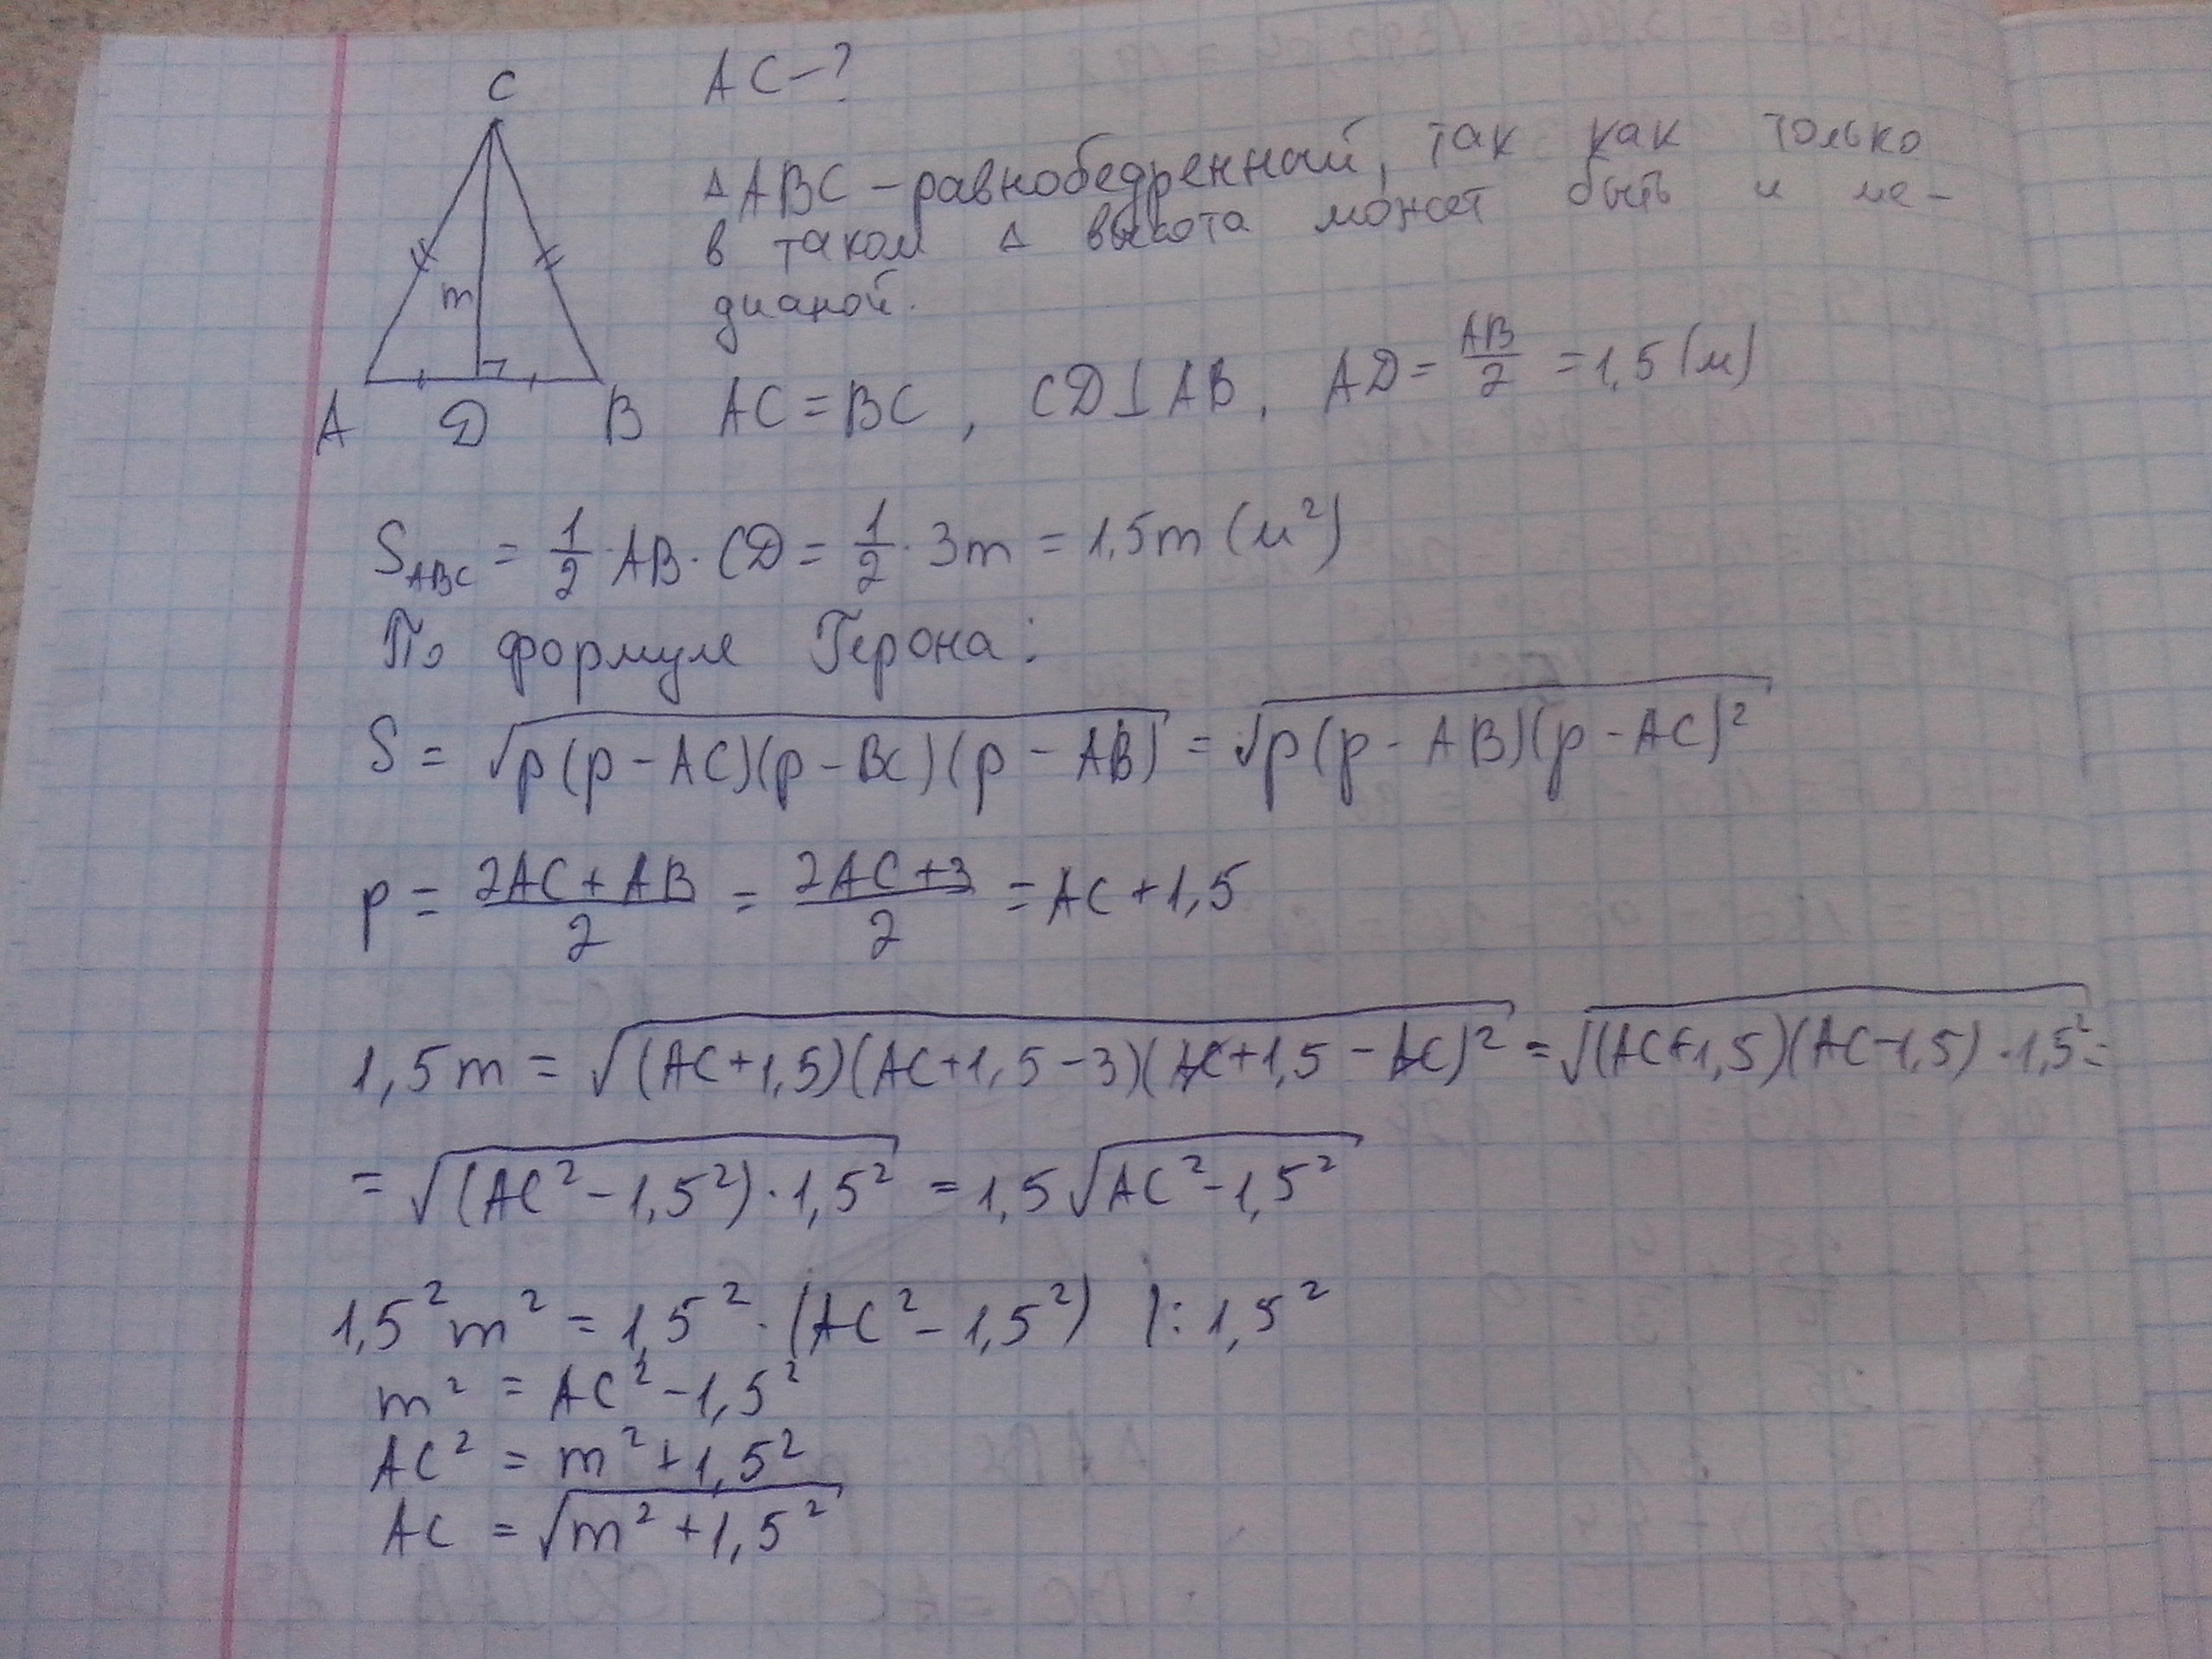 C
AC - ?
m
A D B
△ABC - равнобедренный, так как только
в таком △ высота может быть и ме-
дианой.
AC = BC, CD⊥AB, AD = AB/2 = 1,5 (м)
S_ABC = 1/2 · AB · CD = 1/2 · 3m = 1,5m (м²)
По формуле Герона:
S = √(p(p - AC)(p - BC)(p - AB)) = √(p(p - AB)(p - AC)²)
p = (2AC + AB)/2 = (2AC + 3)/2 = AC + 1,5
1,5m = √((AC+1,5)(AC+1,5-3)(AC+1,5-AC)²) = √((AC+1,5)(AC-1,5)·1,5²) =
= √((AC² - 1,5²)·1,5²) = 1,5√(AC² - 1,5²)
1,5²m² = 1,5² · (AC² - 1,5²) |: 1,5²
m² = AC² - 1,5²
AC² = m² + 1,5²
AC = √(m² + 1,5²)